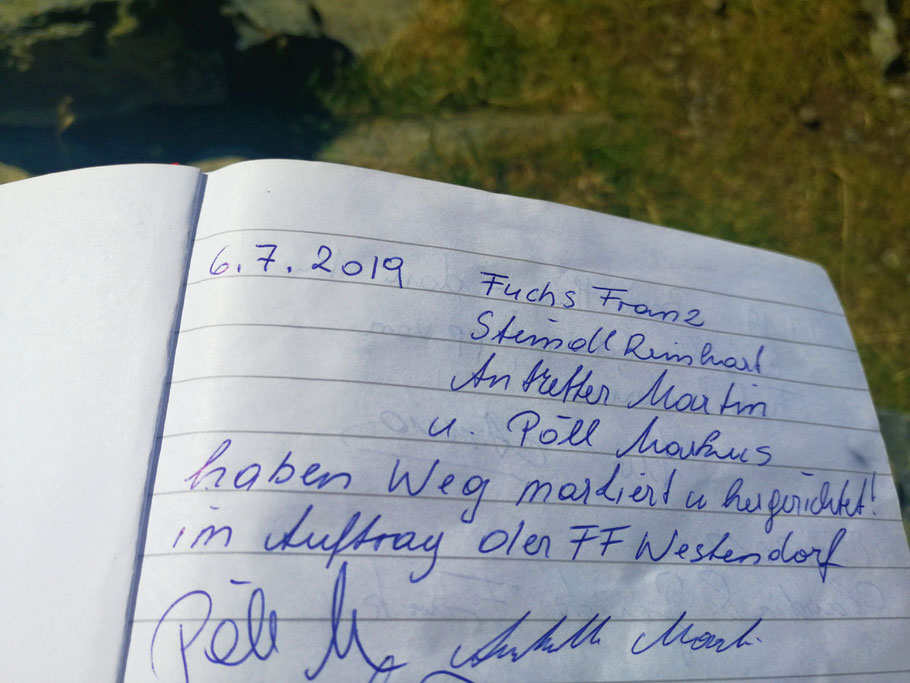 6.7.2019 Fuchs Franz
Steindl Reinhart
Antretter Martin
u. Pöll Markus
haben Weg markiert u hergerichtet!
im Auftrag der FF Westendorf
Pöll M